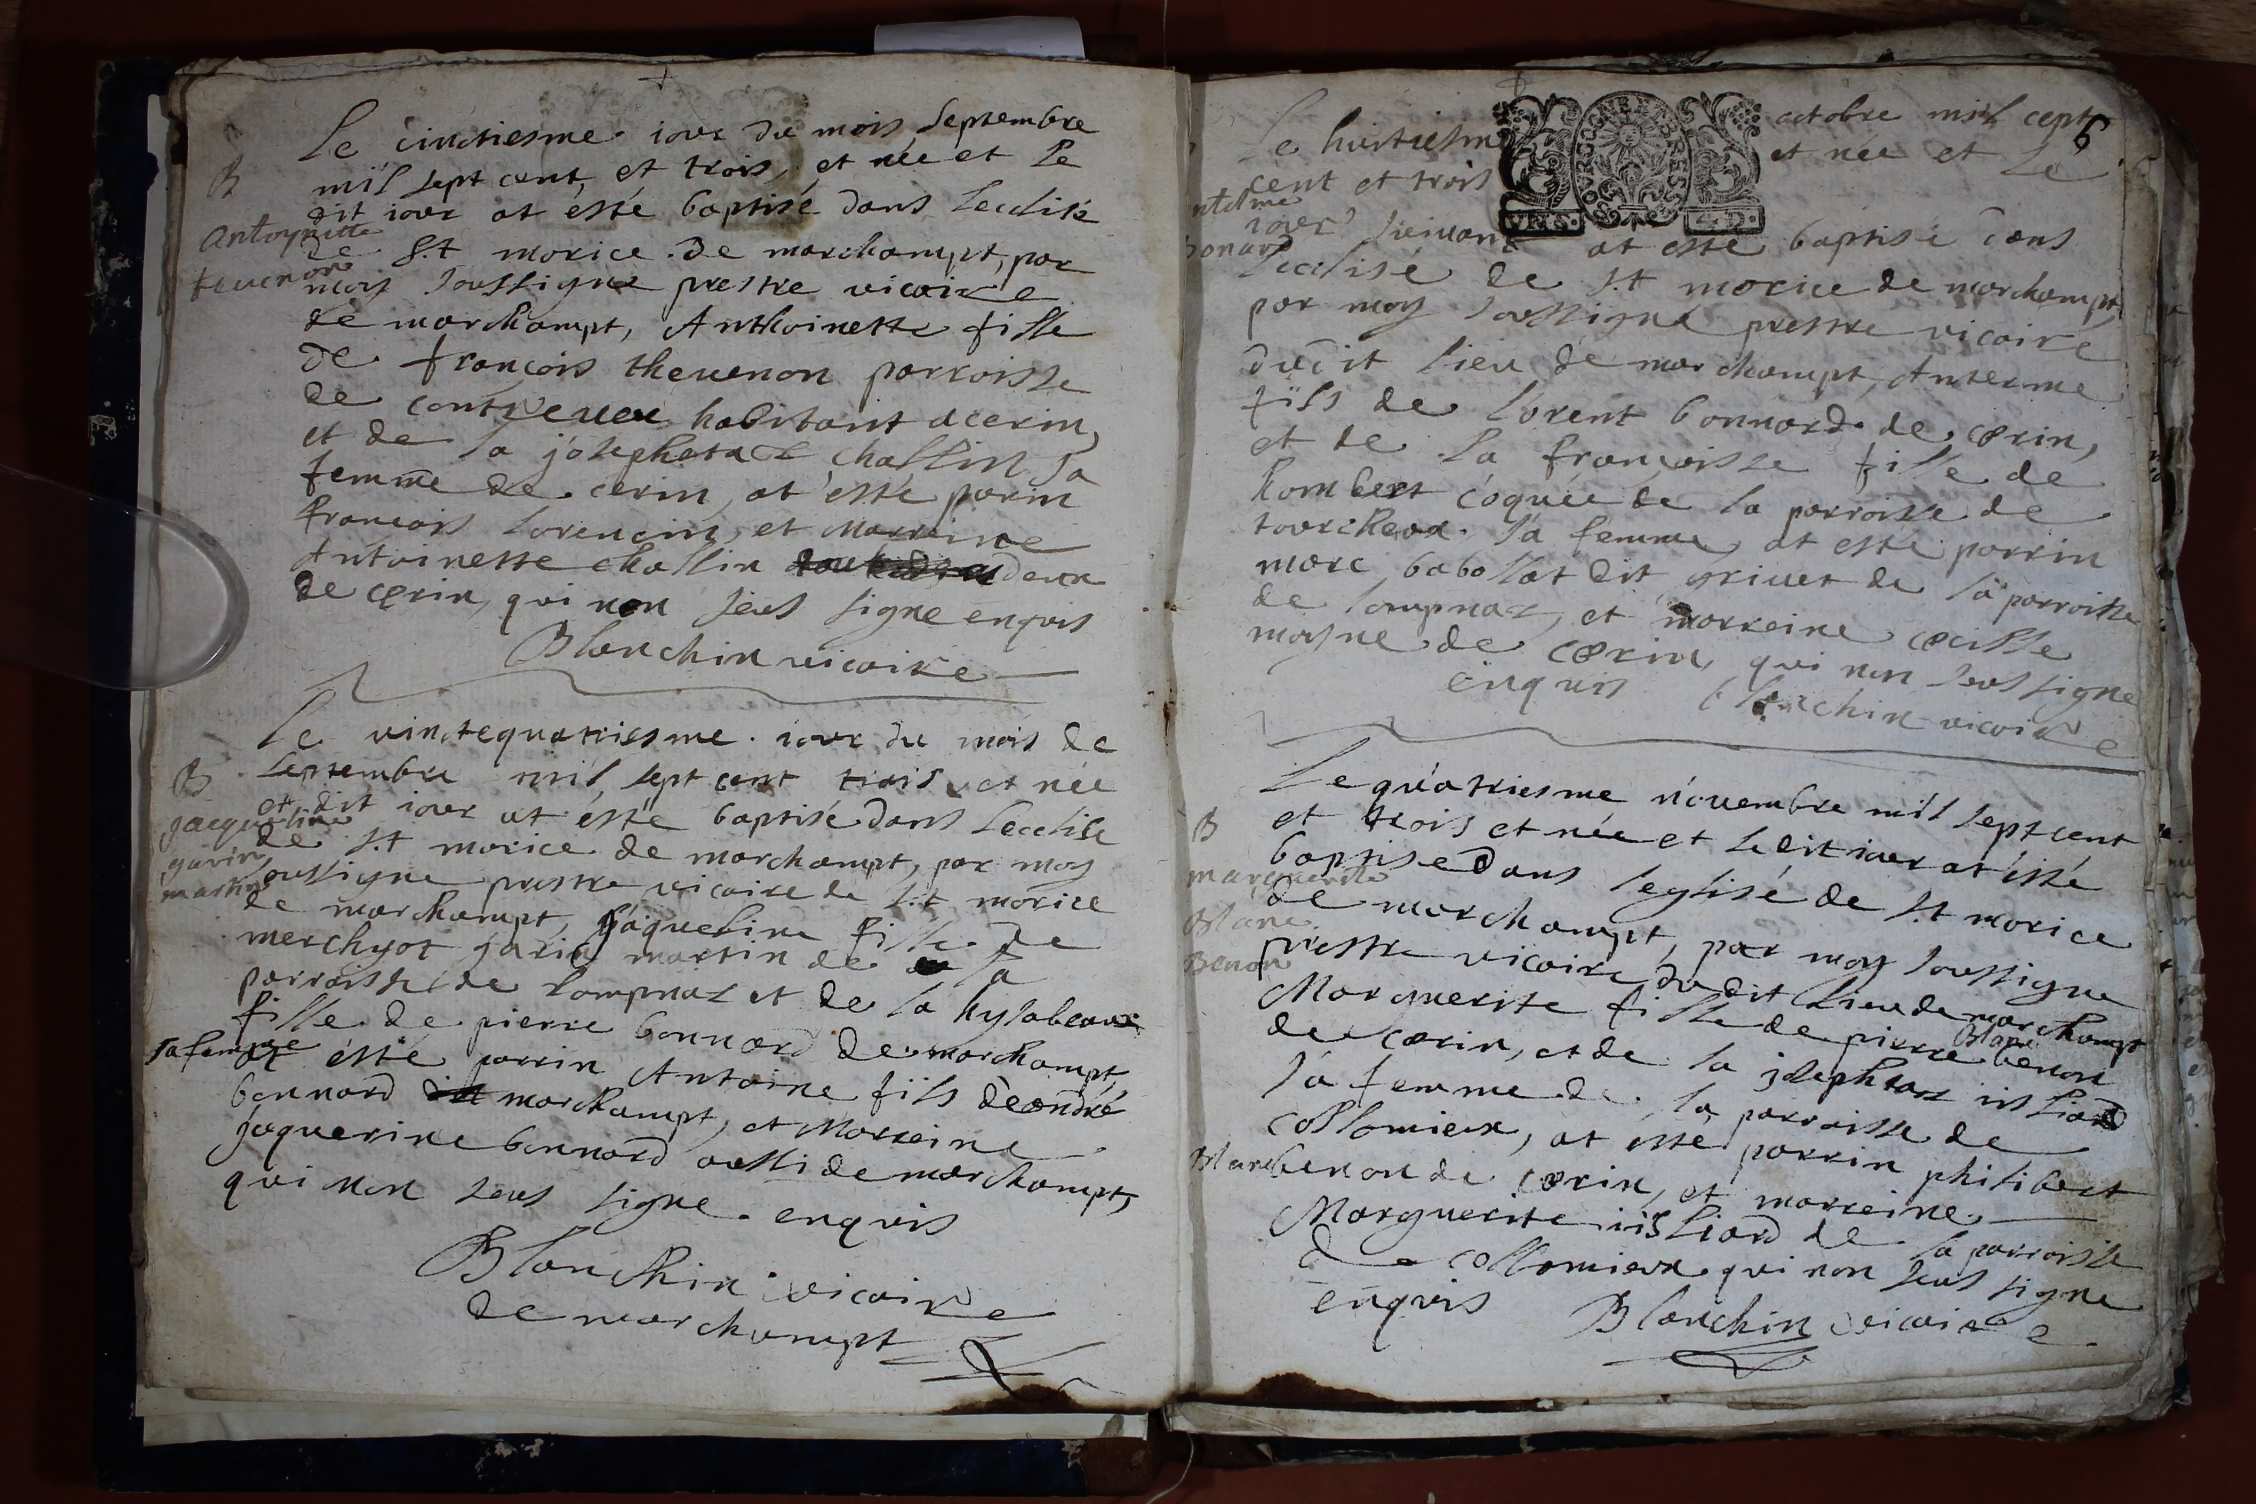 Le cinctiesme iour du mois septembre
mil sept cent et trois, et née et le
dit iour at ésté baptisé dans Lecclise
de S.t morice de marchampt, par
moy soussigne prestre vicaire
de marchampt, Anthoinette fille
de françois thevenon parroisse
de contreuex habitant acerin,
et de la josephetaz challin sa
femme de cerin, at ésté parin
françois lorencin, et Marreine
Antoinette challin deux
de cerin, qui non seus signe enquis
Blanchin vicaire
B
Antoynette
tevenon
Le vinctequatriesme iour du mois de
septembre mil sept cent trois et née
et dit iour at ésté baptisé dans Lecclise
de S.t morice de marchampt, par moy
soussigne prestre vicaire de S.t morice
de marchampt, Jaqueline fille de
merchyot garin martin de la
parroisse de lompnaz et de la hysabeau
fille de pierre bonnard de marchampt,
sa femme at ésté parrin Antoine fils deandré
bonnard marchampt, et Marreine
jaquerine bonnard aussi de marchampt,
qui non seus signe enquis
Blanchin vicaire
de marchampt
B
jacqueline
garin
martin
6
Le huictiesme octobre mil cept
cent et trois et nee et Le
iour suivant at esté baptisé dans
Lecclisé de S.t morice de marchampt,
par moy soussigne prestre vicaire
dudit lieu de marchampt, Anterme
fils de lorent bonnard de cerin,
et de la françoisse fille de
Rombert coquée de la parroisse de
tourcheux sa femme, at esté parrin
marc babollat dit grivet de la parroisse
de lompnaz, et marreine cecille
moyne de cerin, qui non seus signe
enquis blanchin vicaire
ntelme
Bonard
VINS. 4D.
BOURGOGNE BRESSE
Le quatriesme novembre mil sept cent
et trois et née et le dit iour at ésté
baptise dans leglisé de S.t morice
de marchampt, par moy soussigne
prestre vicaire du dit lieu de marchampt
Marguerite fille de pierre Blanc benon
de cerin, et de la josephtaz
sa femme de la parroisse de
collomieux, at ésté parrin philibert
Blanc benon de cerin, et marreine
Marguerite de la parroisse
de collomieux qui non seus signe
enquis Blanchin vicaire
B
marguerite
Blanc
Benon